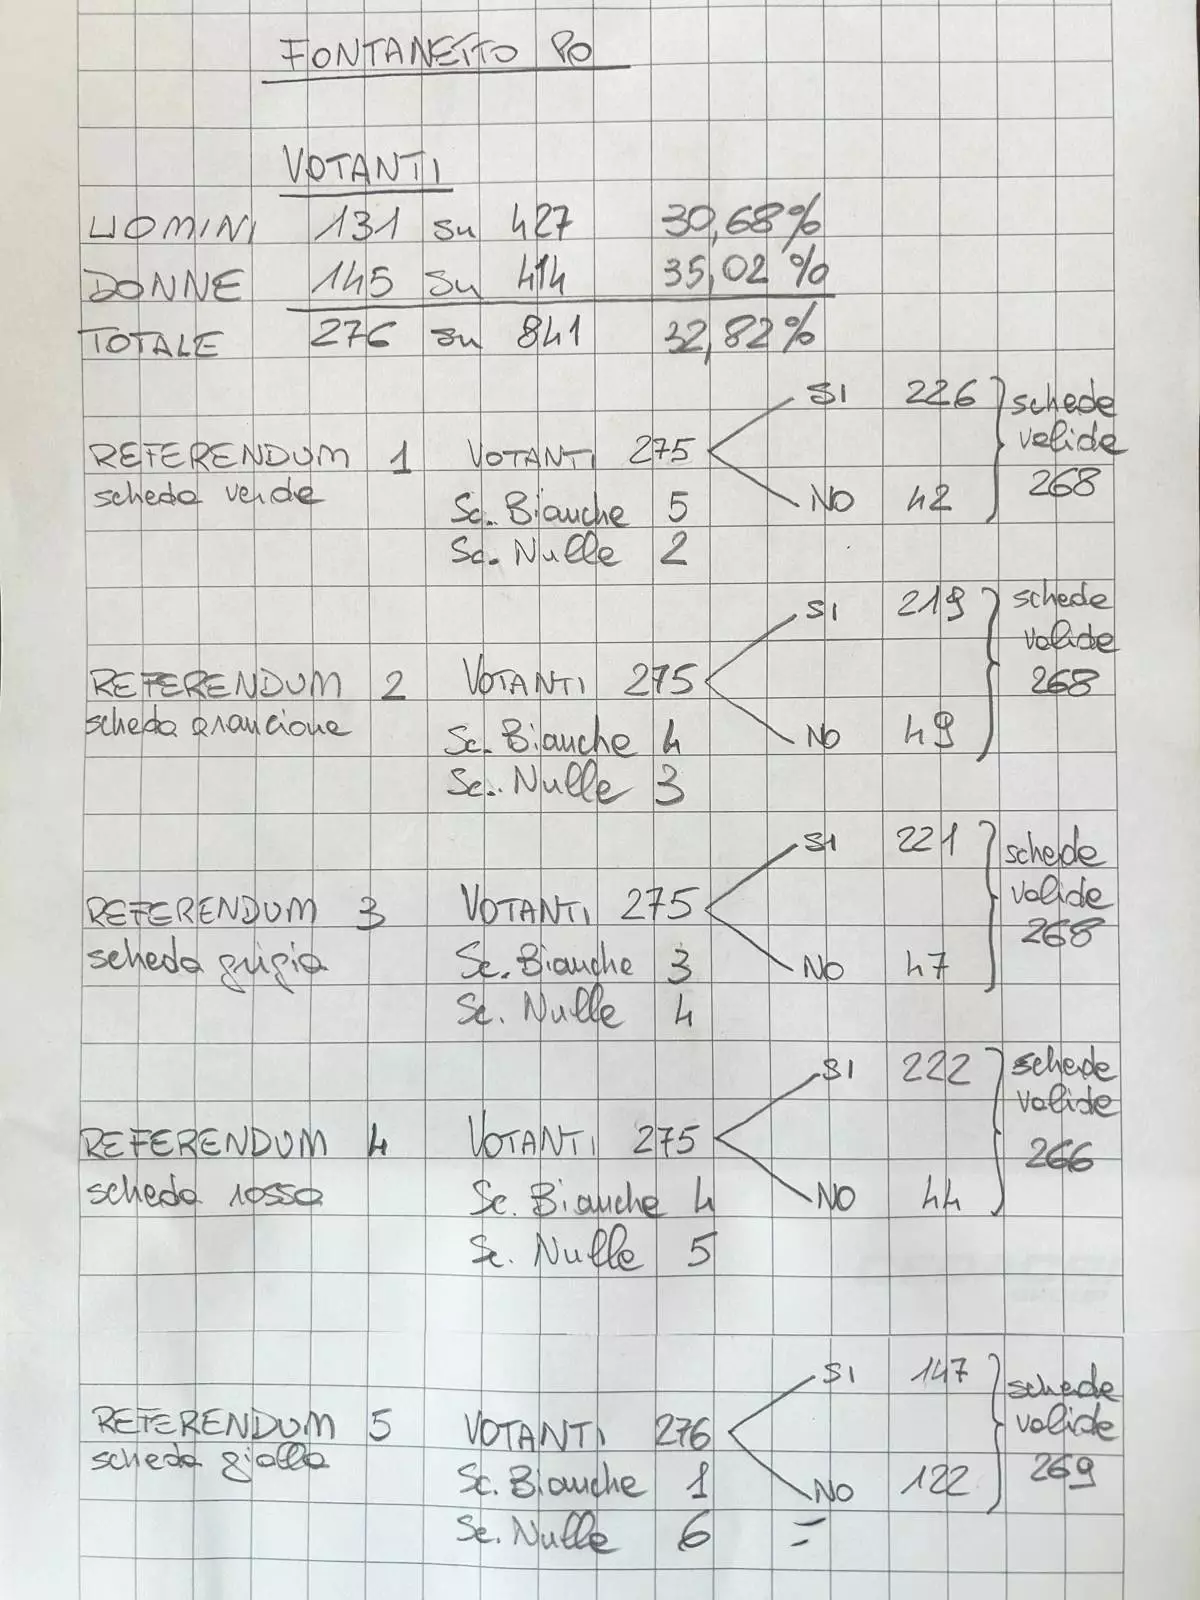 FONTANETTO PO
VOTANTI
UOMINI 131 su 427 30,68%
DONNE 145 su 414 35,02%
TOTALE 276 su 841 32,82%
SI 226 schede
REFERENDUM 1 VOTANTI 275 valide
scheda verde Sc. Bianche 5 NO 42 268
Sc. Nulle 2
SI 219 schede
valide
REFERENDUM 2 VOTANTI 275 268
scheda arancione Sc. Bianche 4 NO 49
Sc. Nulle 3
SI 221 schede
valide
REFERENDUM 3 VOTANTI 275 268
scheda grigia Sc. Bianche 3 NO 47
Sc. Nulle 4
SI 222 schede
valide
REFERENDUM 4 VOTANTI 275 266
scheda rossa Sc. Bianche 4 NO 44
Sc. Nulle 5
SI 147 schede
REFERENDUM 5 VOTANTI 276 valide
scheda gialla Sc. Bianche 1 NO 122 269
Sc. Nulle 6 =